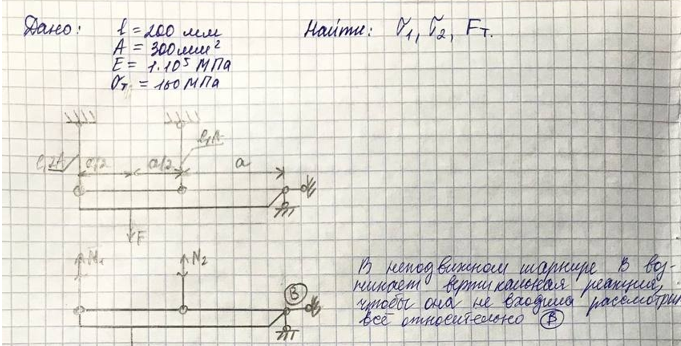 Дано: l = 200 мм
A = 300 мм²
E = 1·10⁵ МПа
σт = 160 МПа
Найти: σ1, σ2, Fт.
l, 2A
a/2
a/2
l, A
a
F
N1
N2
B
В неподвижном шарнире В воз-
никает вертикальная реакция,
чтобы она не входила рассмотрим
всё относительно B